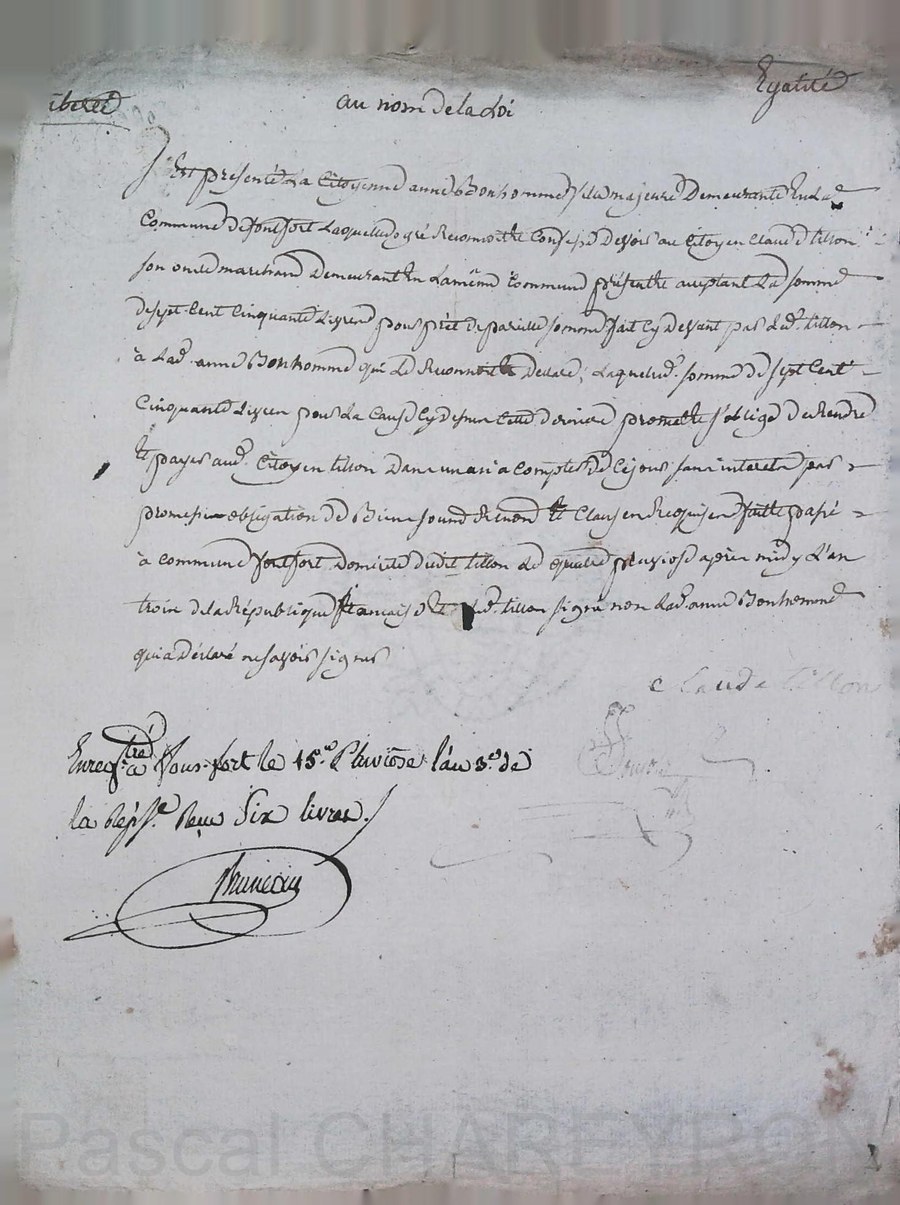 iberté au nom de la Loi Egalité
Est présente La Citoyenne anne Bonhomme fille majeure Demeurante En Lad.
Commune de fontfort Laquelle de gré Reconnoit Et Confesse Devoir au Citoyen Claude tillon
son oncle marchand Demeurant En La même Commune présent Et aceptant La somme
de sept Cent Cinquante Livres pour prêt de pareille somme fait Cy Devant par Led. tillon
à Lad. anne Bonhomme qui La Reconnut Et Déclaré, Laquelle d. somme de sept Cent
Cinquante Livres pour La Cause Cy dessus Cette derniere promet Et s'oblige de Rendre
Et payer aud. Citoyen tillon Dans un an a Compter de Ce jour sans interets par
promesse obligation de Biens Et Clauses Requises fait Et passé
à commune fontfort Domicile dudit tillon Le quatre pluviose après midy L'an
trois de la République française Et Led. tillon signé non Lad. anne Bonhomme
qui a Déclaré ne savoir signer
Claude tillon
Enregtré à Fons-fort le 15e Pluviôse l'an 3e de
la Répe. Reçu Six livres.
Pascal CHAREYRON